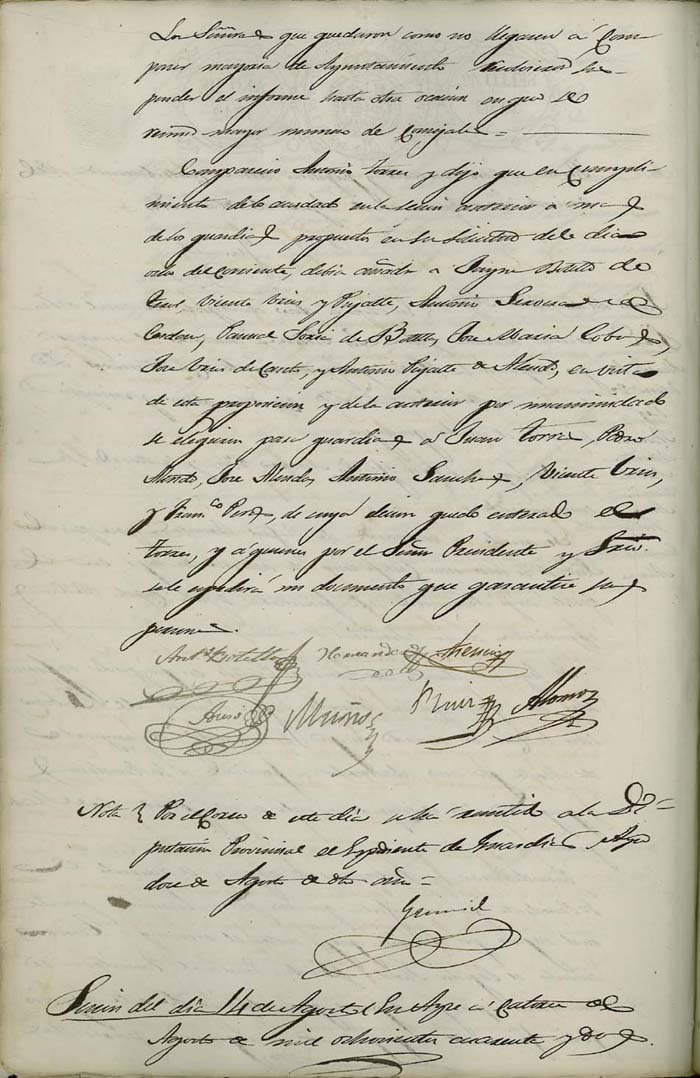 Los Señores que quedaron como no llegaren á Com-
poner mayoria de Ayuntamiento sus-
pender el informe hasta otra ocasion en que se
reuna mayor numero de Concejales =
Comparecio Antonio Torres y dijo que en Cumpli-
miento de lo acordado en la sesion anterior a mas
de los guardias propuestos en su solicitud del dia
ocho del corriente, debia añadir a Jayme
Vicente y Pujalte, Antonio
Cerdan, Pascual de Jose Maria Cobos,
Jose de y Antonio Pujalte de Mendo, en vista
de esta proposicion y de la anterior por unanimidad
se eligieron para guardias á Juan Torres, Pedro
Mendo, José Mendo, Antonio Sanchez, Vicente
y Fran.co Perez, de cuya quedó enterado el
Torres, y á quienes por el Señor Presidente y Srio.
se le espedirá un documento que garantice sus
personas.
Ant.o Botella Hernandez
Muñoz Ruiz Alonso
Nota Por el Correo de este dia se ha remitido a la Di-
putacion Provincial el Espediente de Guardias Aspe
doce de Agosto de dho año =
Sesion del dia 14 de Agosto En Aspe á Catorce de
Agosto de mil ochocientos cuarenta y dos